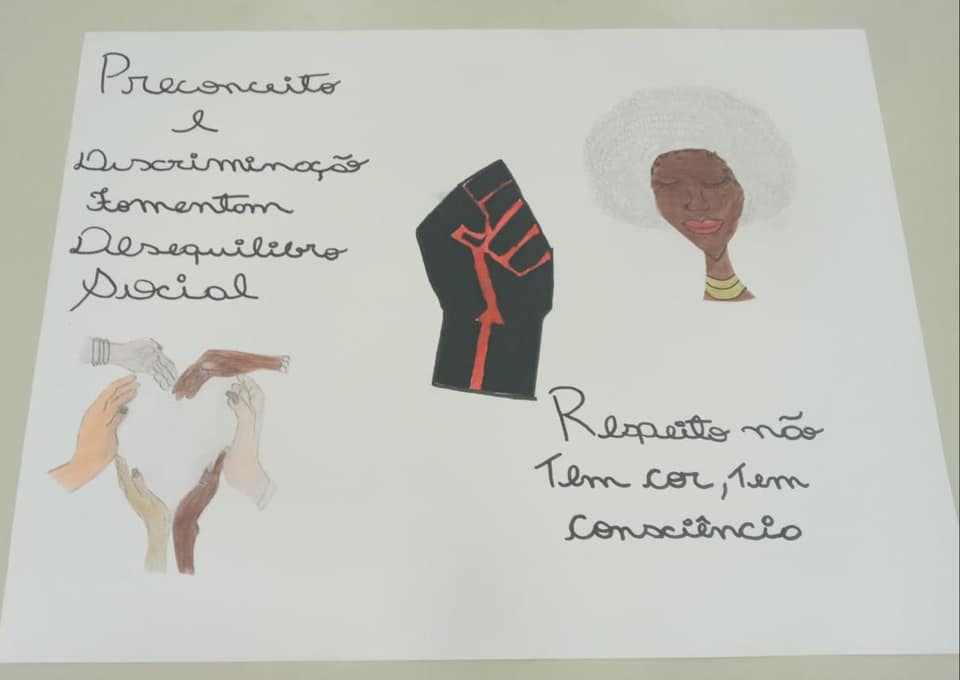 Preconceito
e
Discriminação
Fomentam
Desequilibro
Social
Respeito não
Tem cor, Tem
Consciência